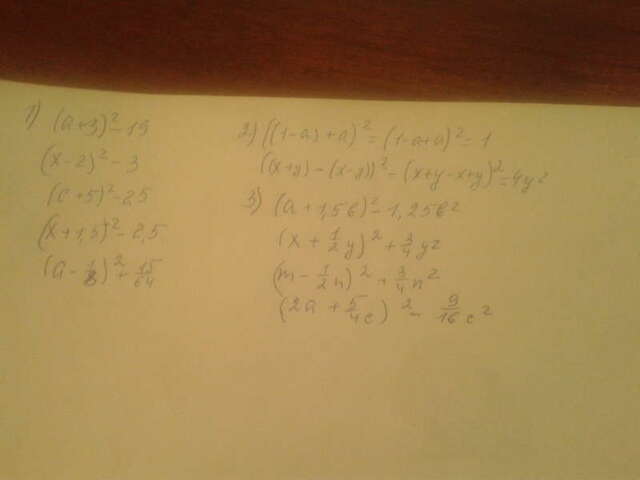 1) (a+3)²-19
(x-2)²-3
(c+5)²-25
(x+1,5)²-2,5
(a-1/8)²+15/64
2) ((1-a)+a)²=(1-a+a)²=1
((x+y)-(x-y))²=(x+y-x+y)²=4y²
3) (a+1,5b)²-1,25b²
(x+1/2y)²+3/4y²
(m-1/2n)²+3/4n²
(2a+5/4c)²-9/16c²